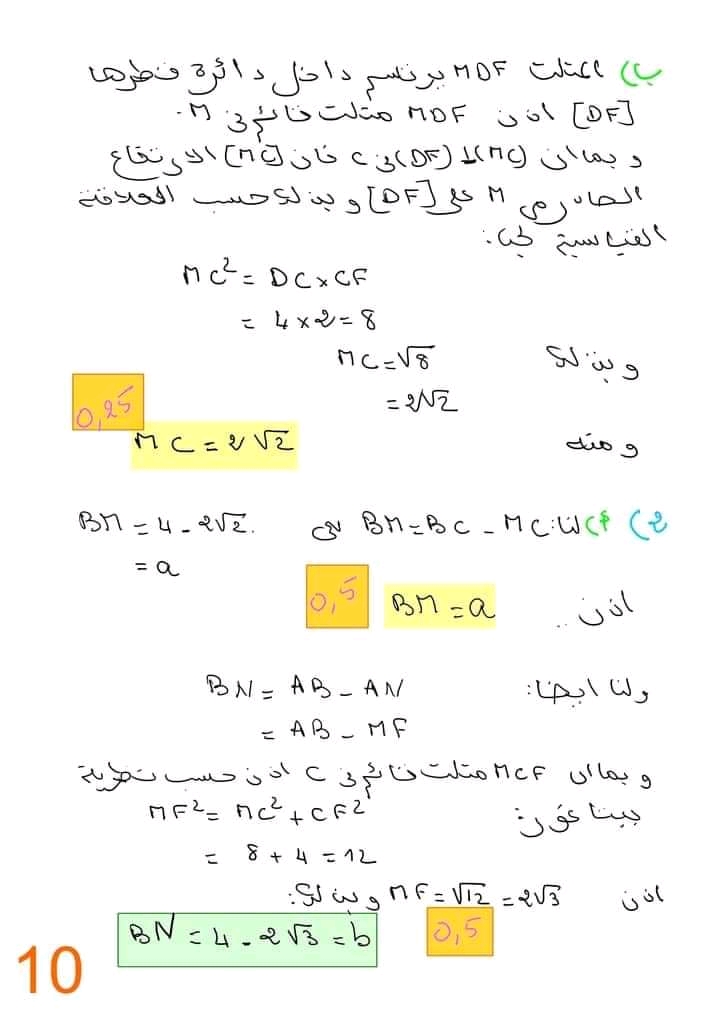 ب) المثلث MDF يرتسم داخل دائرة قطرها
[DF] اذن MDF مثلث قائم في M.
و بما ان (MC)⊥(DF) في C فان [MC] الارتفاع
الصادر من M على [DF] و بذلك حسب العلاقة
القياسية لنا:
MC² = DC×CF
= 4×2=8
و بذلك MC=√8
=2√2
0,25
و منه MC=2√2
2) أ) لنا: BM=BC-MC يعني BM=4-2√2.
=a
اذن.. BM=a 0,5
ولنا ايضا: BN= AB-AN
= AB-MF
و بما ان MCF مثلث قائم في C اذن حسب نظرية
بيتاغور: MF²= MC²+CF²
= 8+4=12
اذن MF=√12=2√3 و بذلك:
BN=4-2√3=b 0,5
10